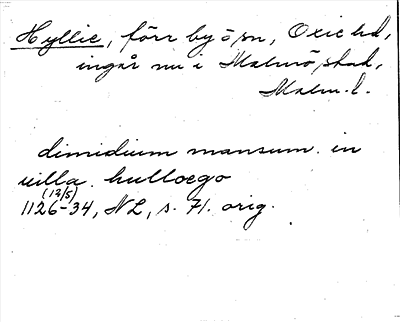 Hyllie, förr by ö/sn, Oxie hd,
ingår nu i Malmö stad,
Malm. l.
dimidium mansum. in
uilla. hulloego
(12/5)
1126-34, NL, s. 71. orig.